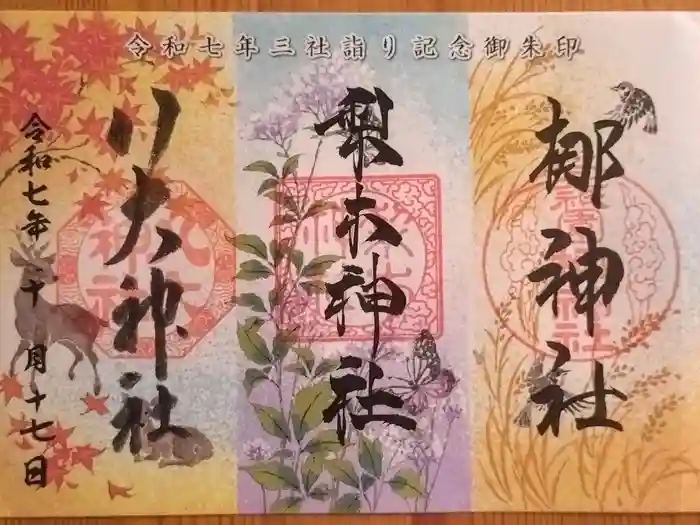 令和七年三社詣り記念御朱印
梛神社
梨木神社
八大神社
令和七年十一月十七日